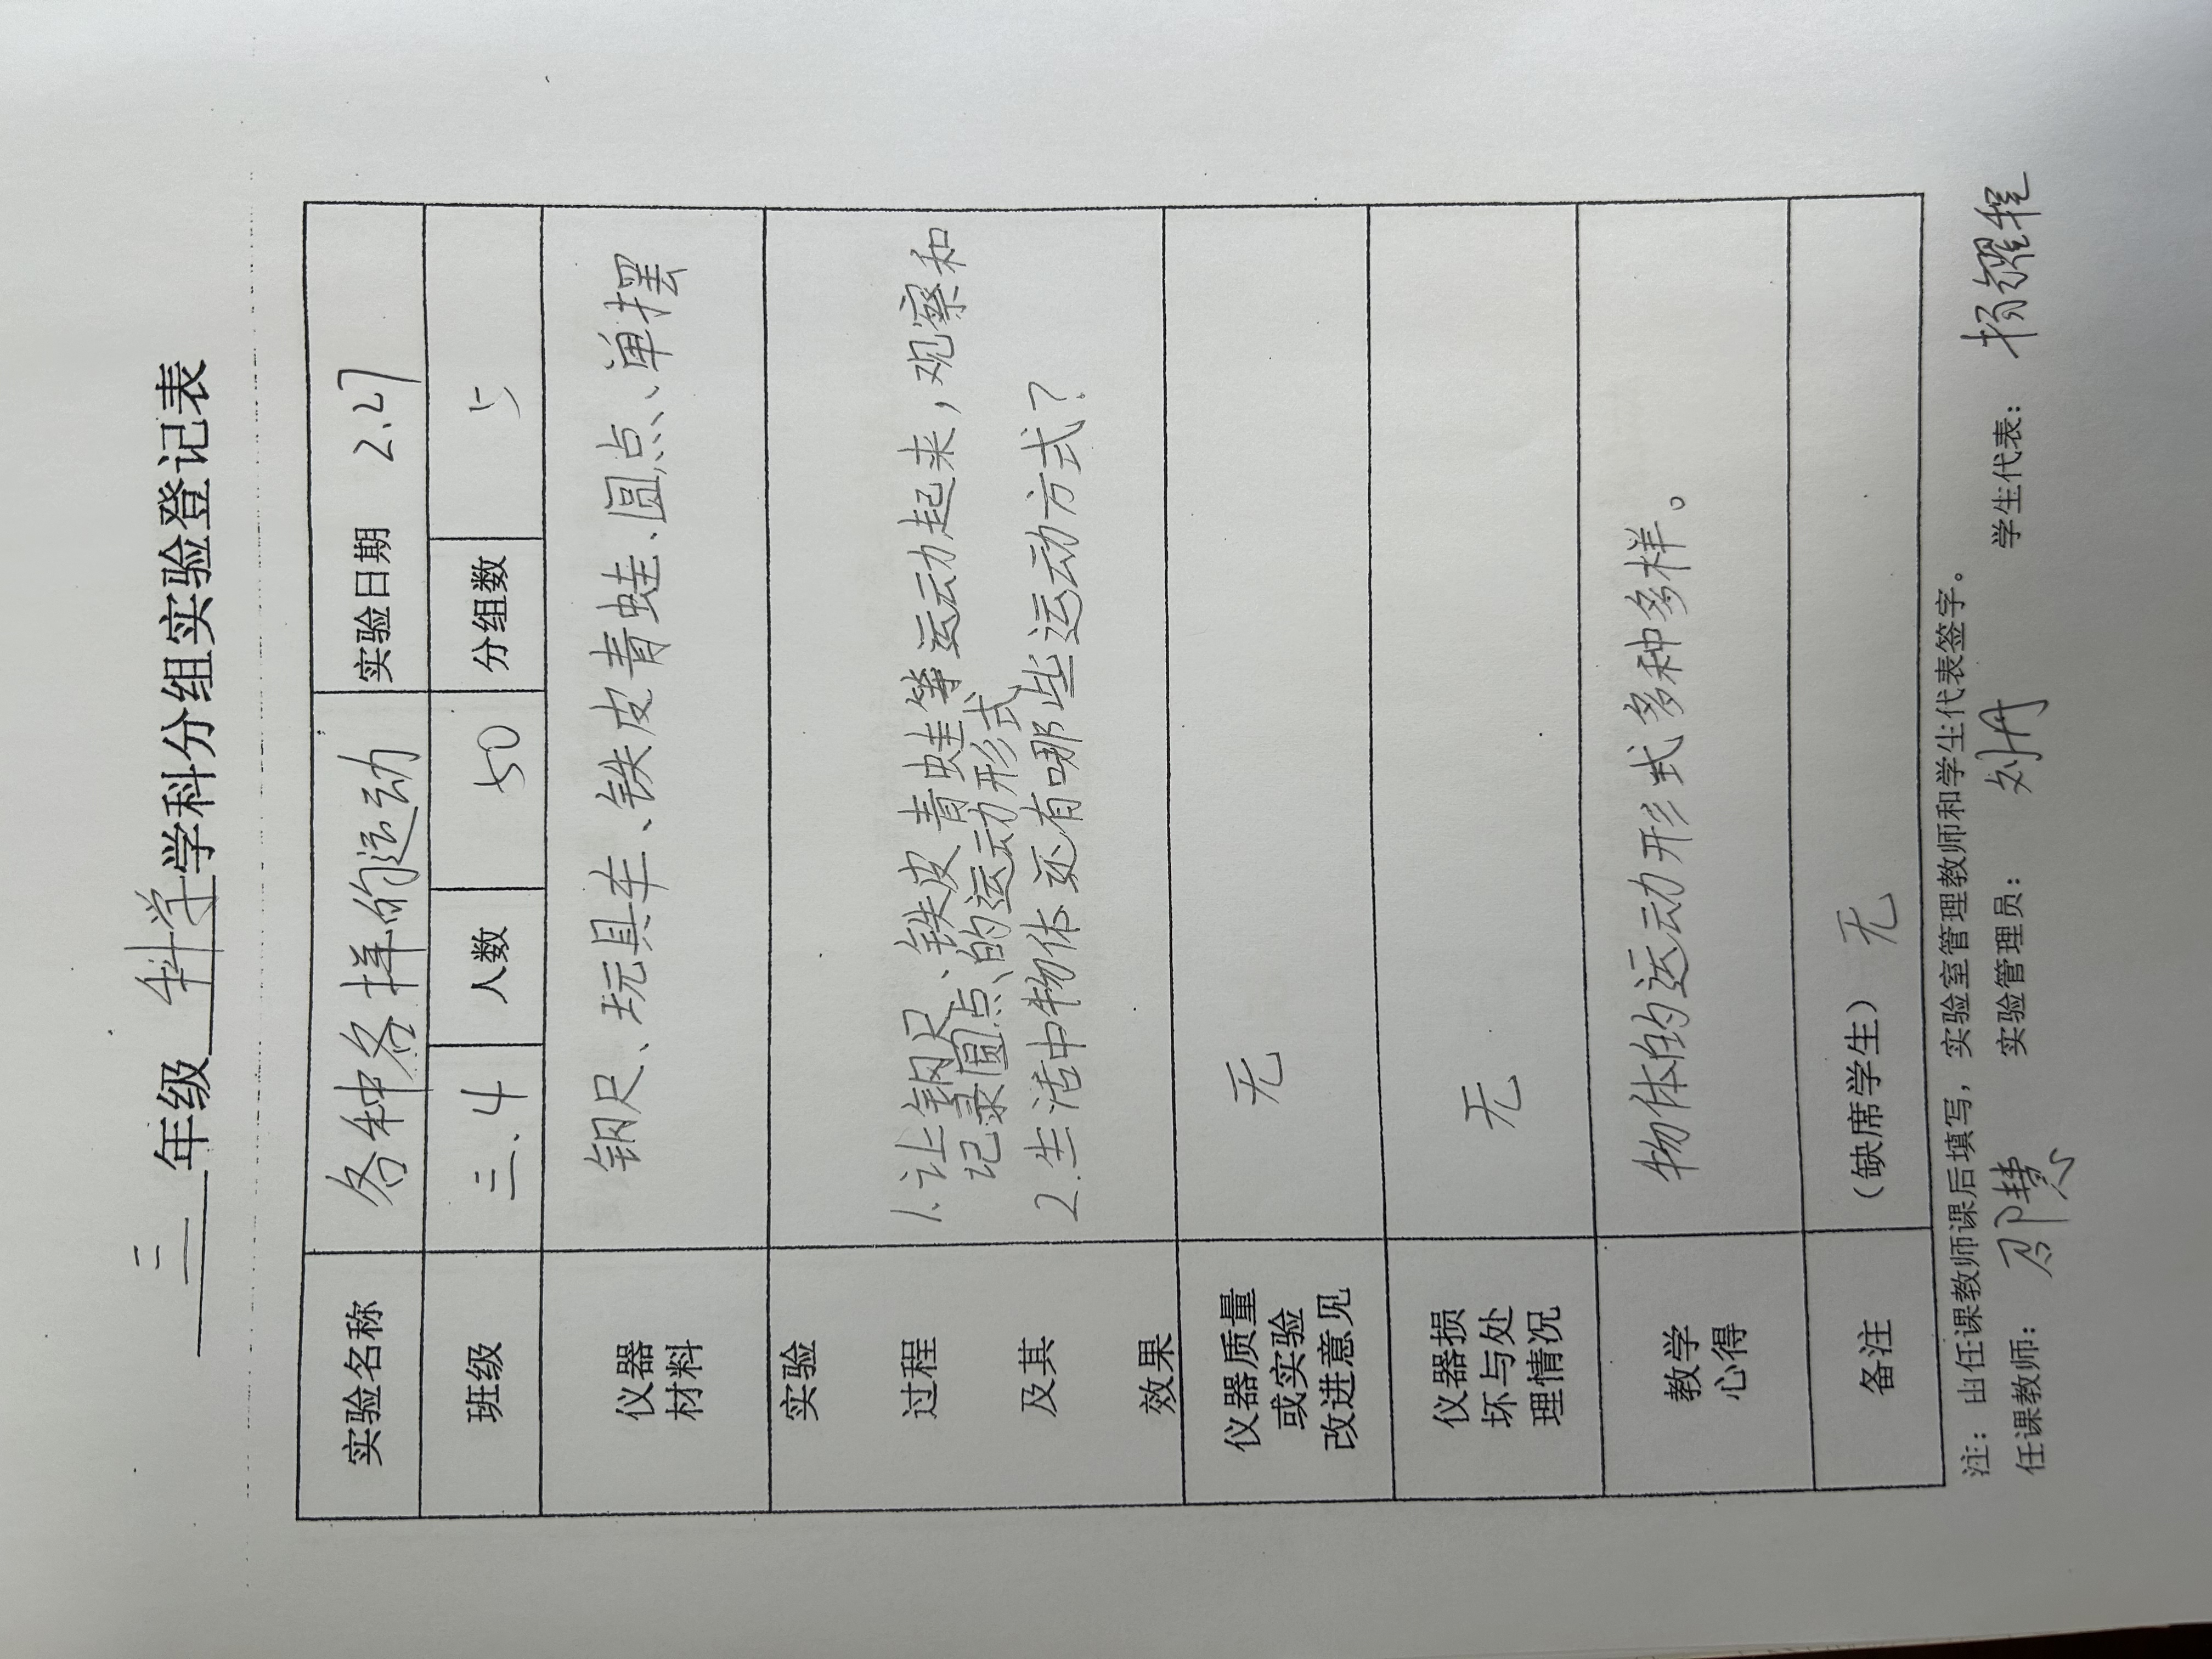 三年级科学学科分组实验登记表
实验名称 各种各样的运动 实验日期 2.27
班级 三.4 人数 50 分组数 5
仪器
材料
钢尺、玩具车、铁皮青蛙、圆点、单摆
实验
过程
及其
效果
1.让钢尺、铁皮青蛙等运动起来,观察和
记录圆点的运动形式
2.生活中物体还有哪些运动方式?
仪器质量
或实验
改进意见
无
仪器损
坏与处
理情况
无
教学
心得
物体的运动形式多种多样。
备注 (缺席学生) 无
注:由任课教师课后填写,实验室管理教师和学生代表签字。
任课教师:邵慧 实验管理员:刘丹 学生代表:杨耀程